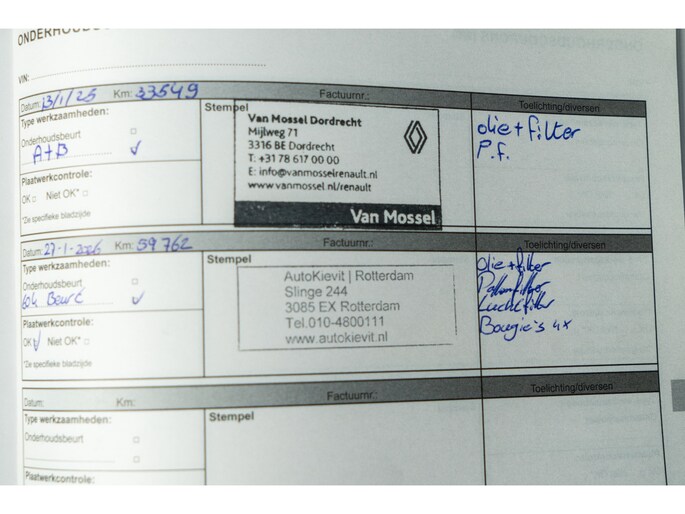 VIN:
Datum: 13/1/25 Km: 33549 Factuurnr.: Toelichting/diversen
Type werkzaamheden:
Onderhoudsbeurt
A+B
Plaatwerkcontrole:
OK Niet OK*
*Zie specifieke bladzijde
Stempel
Van Mossel Dordrecht
Mijlweg 71
3316 BE Dordrecht
T: +31 78 617 00 00
E: info@vanmosselrenault.nl
www.vanmossel.nl/renault
Van Mossel
olie+filter
P.f.
Datum: 27-1-2026 Km: 59762 Factuurnr.: Toelichting/diversen
Type werkzaamheden:
Onderhoudsbeurt
60k Beurt
Plaatwerkcontrole:
OK Niet OK*
*Zie specifieke bladzijde
Stempel
AutoKievit | Rotterdam
Slinge 244
3085 EX Rotterdam
Tel.010-4800111
www.autokievit.nl
olie+filter
Pollenfilter
Luchtfilter
Bougie's 4x
Datum: Km: Factuurnr.: Toelichting/diversen
Type werkzaamheden:
Onderhoudsbeurt
Plaatwerkcontrole:
Stempel